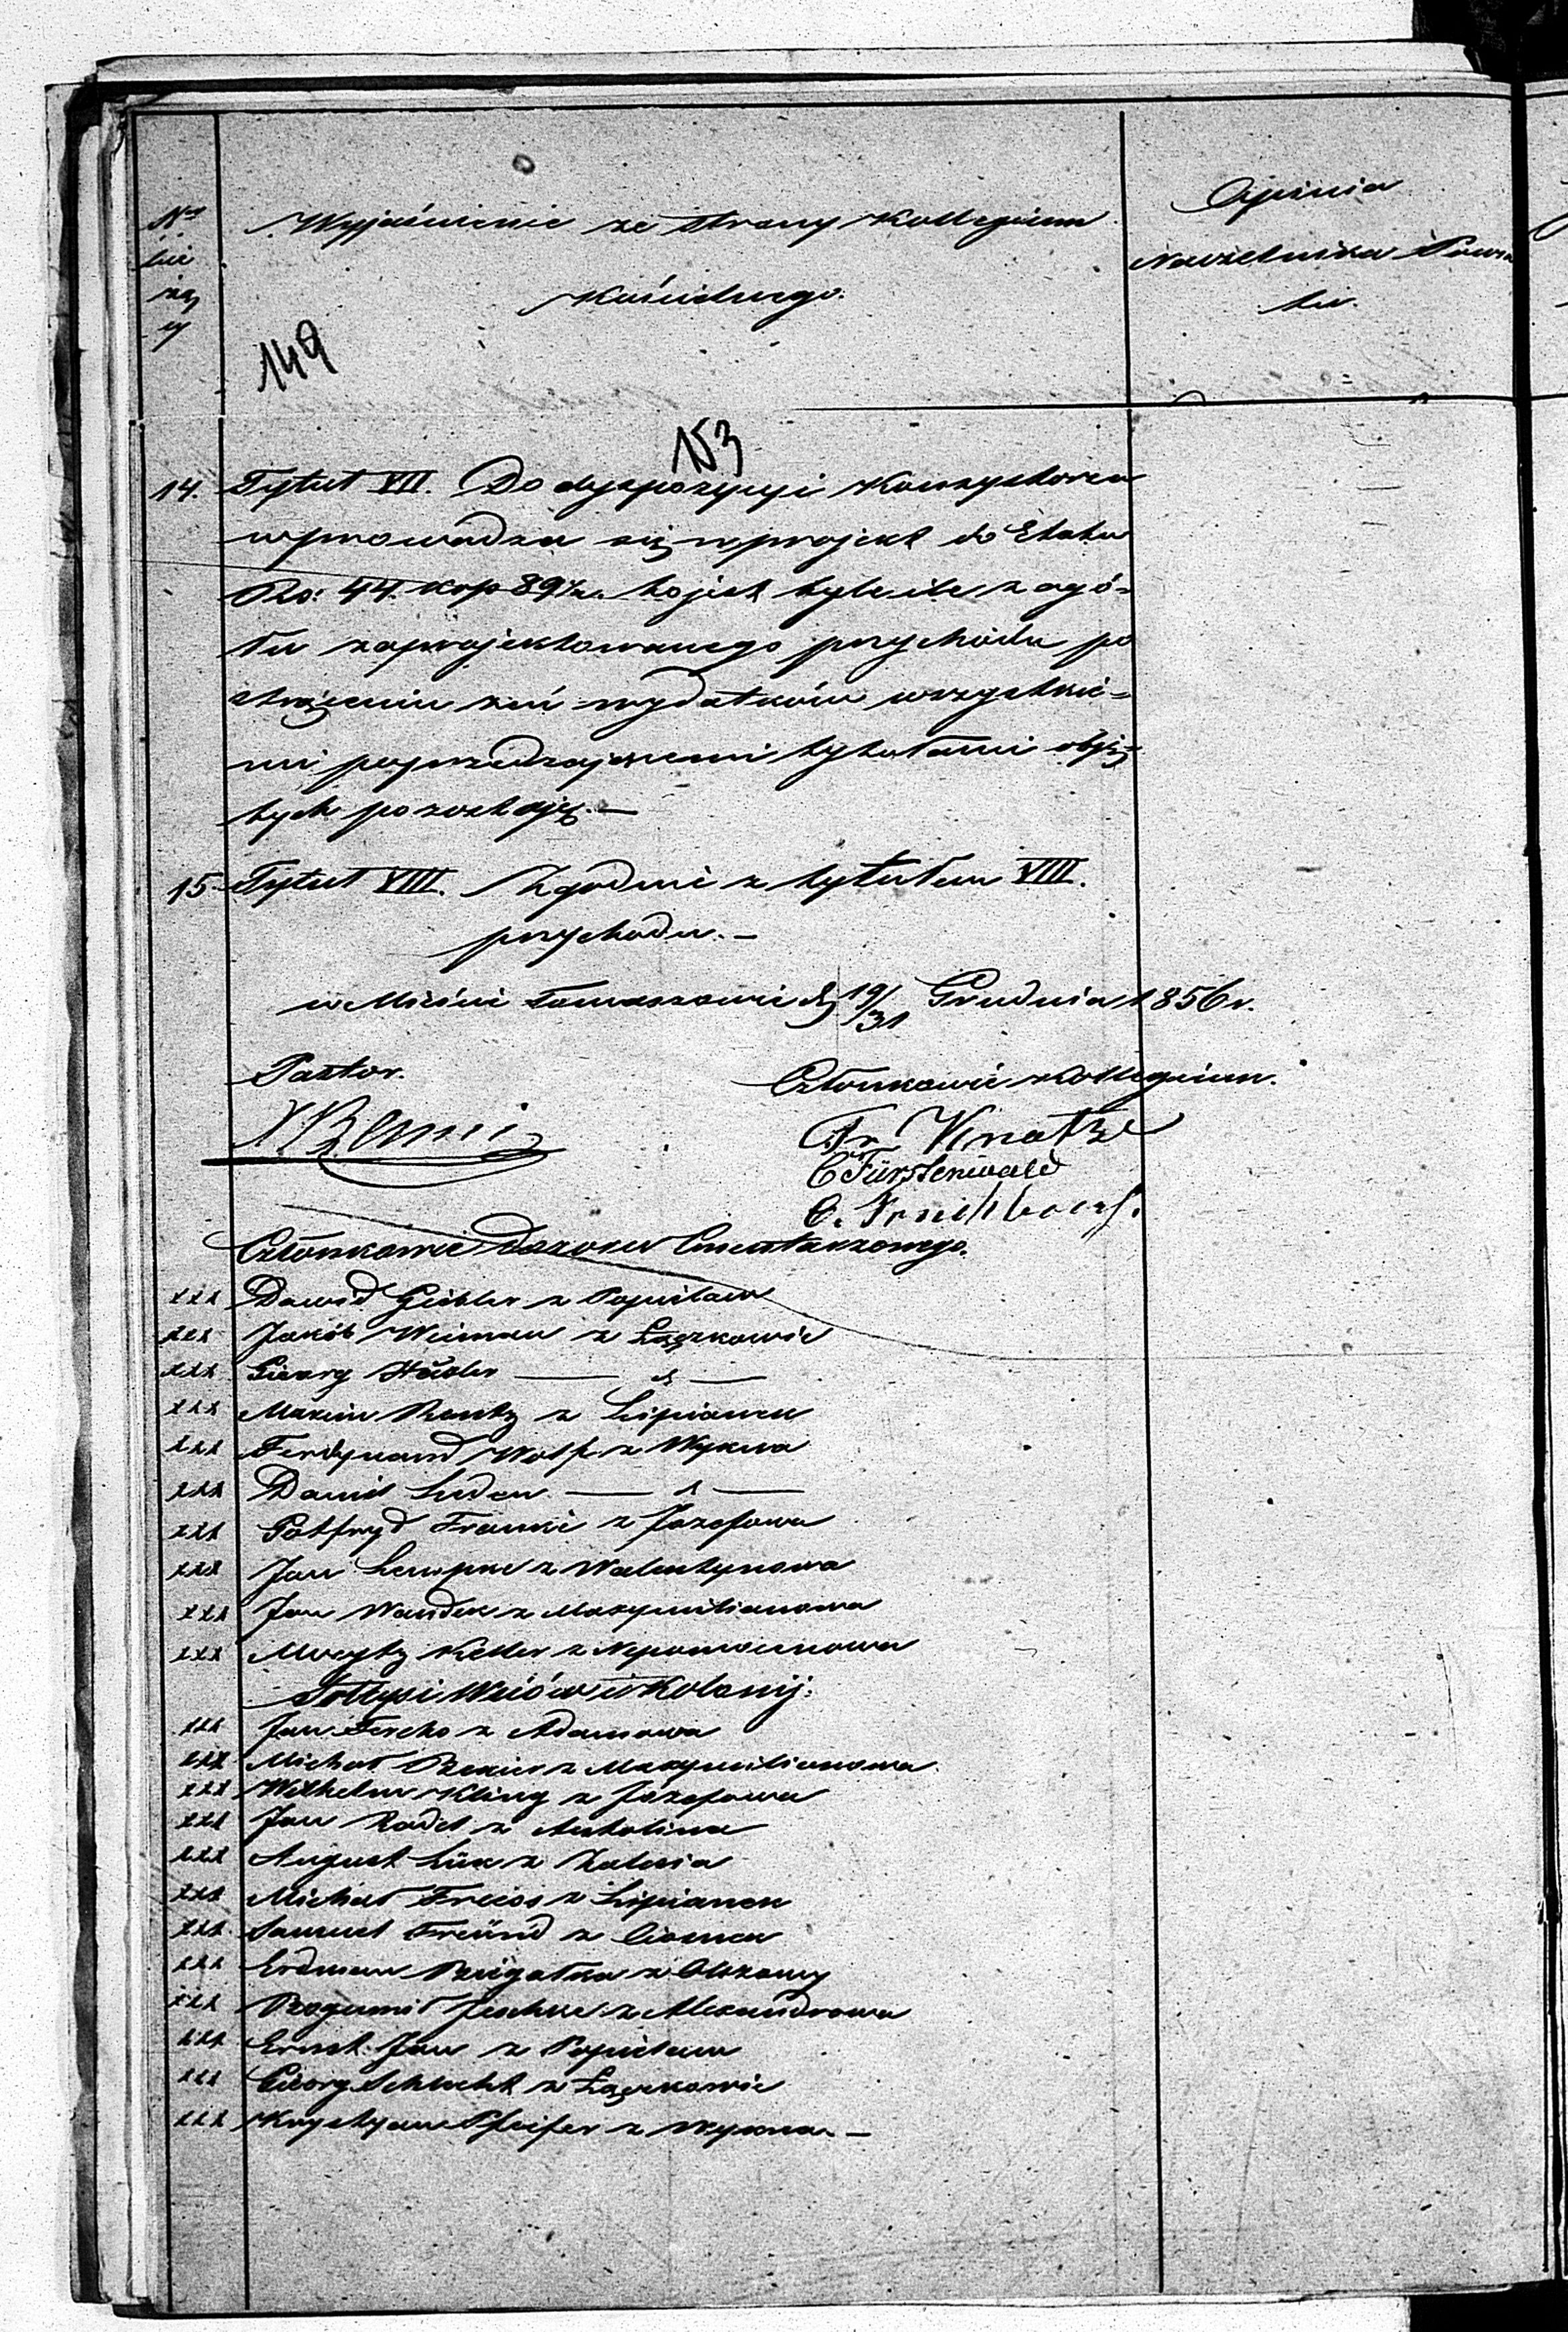 Nr
bie
żą
cy
Wyjaśnienie ze strony Kollegium
Kościelnego.
Opinia
Naczelnika Powia
tu.
149
153
14. Tytuł VII. Do dyspozycyi Konsystorza
wprowadza się w projekt do Etatu
Rs: 44. kop 89½. to jest tyle ile z ogó=
łu zaprojektowanego przychodu po
strąceniu zeń wydatków wszystkie=
mi poprzedzającemi tytułami obję=
tych pozostaje.—
15 Tytuł VIII. Zgodnie z tytułem VIII.
przychodu.—
w Mieście Tomaszowie d 19/31 Grudnia 1856 r.
Pastor.
Członkowie Kollegium.
Fr. Knothe
C Fürstenwald
Członkowie Dozoru Cmentarzowego.
xxx Dawid Giebler z Popielaw
xxx Jakób Weiman z Łączkowic
xxx Georg Städler — d —
xxx Marcin Rentz z Lipianek
xxx Ferdynand Wolf z Wykna
xxx Daniel — d —
xxx Gottfryd Franke z Józefowa
xxx Jan Lempke z Walentynowa
xxx Jan z Maxymilianowa
xxx Morytz Keller z Nepomucenowa
Sołtysi Wsiów i Kolonij:
xxx Jan Fercho z Adamowa
xxx Michał z Maxymilianowa
xxx Wilhelm Kling z Józefowa
xxx Jan Radel z Antolina
xxx August Lük z Zalesia
xxx Michał z Lipianek
xxx Samuel Freünd z Ciosna
xxx Erdman z Olszowy
xxx Bogumił Jeschke z Alexandrowa
xxx Ernst Jan z Popielaw
xxx Georg Schlecht z Łączkowic
xxx Krystyan Pfeifer z Wykna—